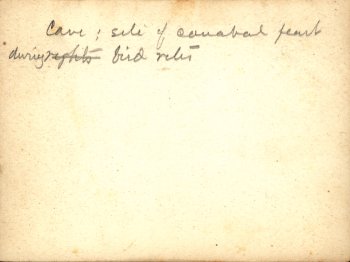 Cave ; site of canabal feast
during rights bird rites